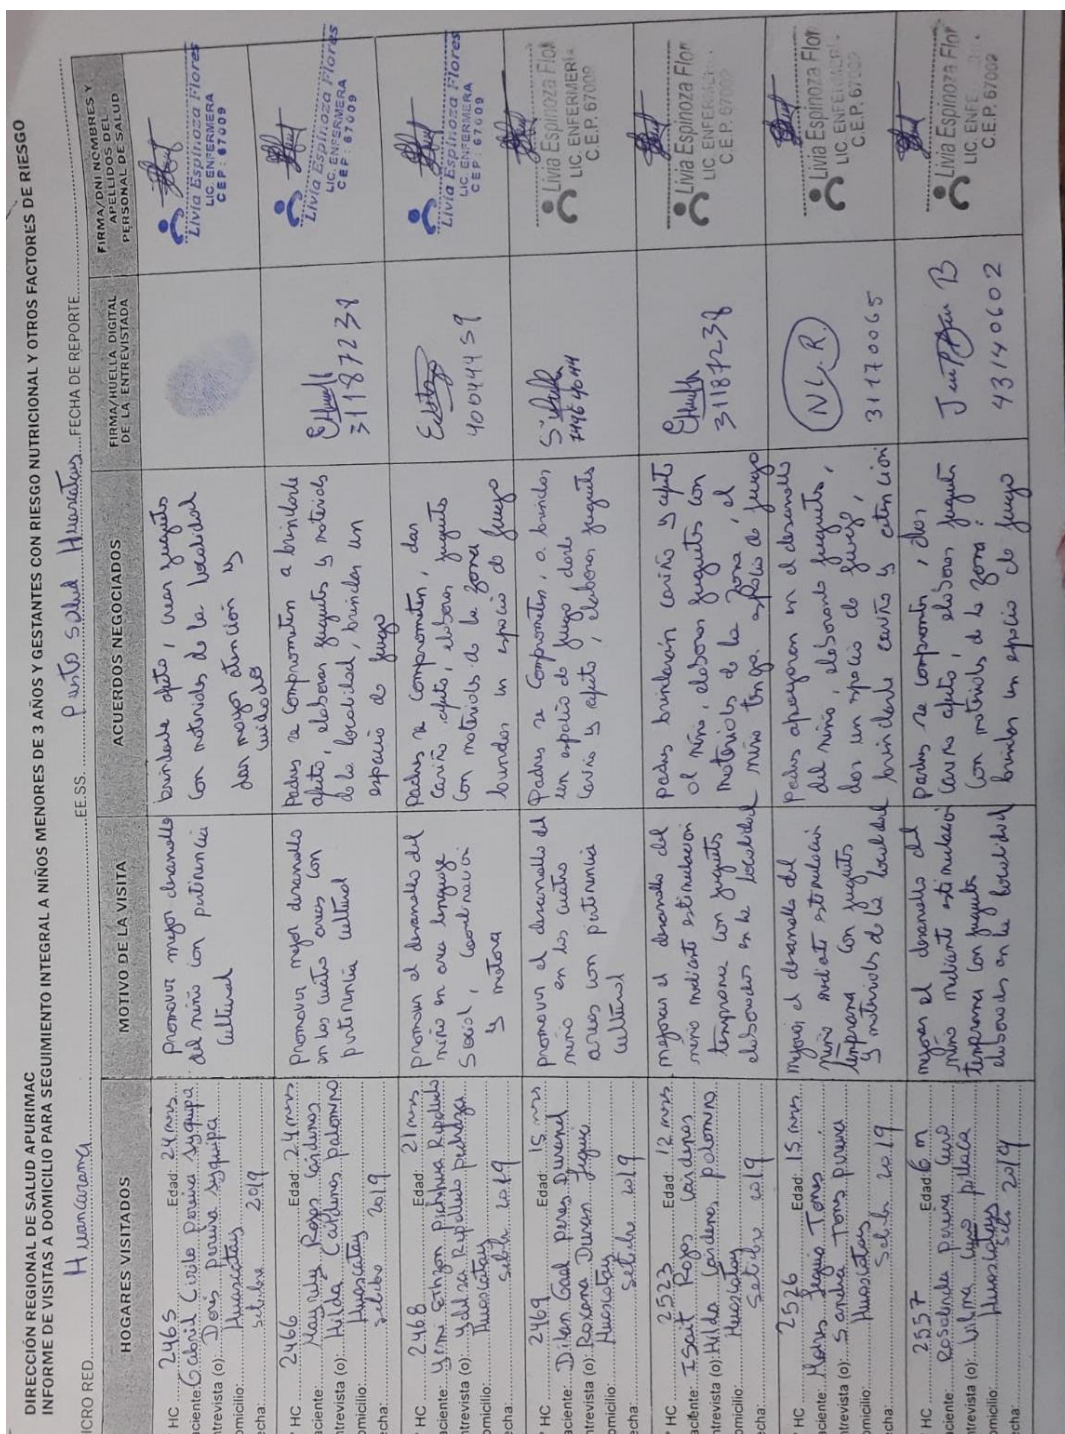 DIRECCIÓN REGIONAL DE SALUD APURIMAC
INFORME DE VISITAS A DOMICILIO PARA SEGUIMIENTO INTEGRAL A NIÑOS MENORES DE 3 AÑOS Y GESTANTES CON RIESGO NUTRICIONAL Y OTROS FACTORES DE RIESGO
ICRO RED Huancarama EE.SS. Puesto Salud Huascatay FECHA DE REPORTE
HOGARES VISITADOS
MOTIVO DE LA VISITA
ACUERDOS NEGOCIADOS
FIRMA/HUELLA DIGITAL
DE LA ENTREVISTADA
FIRMA/DNI NOMBRES Y
APELLIDOS DEL
PERSONAL DE SALUD
HC 2465 Edad: 24 mrs
aciente: Gabril pereira syquipa
ntrevista (o): Doris pereira syquipa
omicilio: Huascatay
echa: 2019
promover mejor desarrollo
del niño con pertinencia
cultural
brindarle afeto, crear juguets
con materials de la localidad
dan mayor atención y
cuidado
Livia Espinoza Flores
LIC. ENFERMERA
CEP: 67009
HC 2466 Edad: 24 mrs
aciente: Rojas Cardenas
ntrevista (o): Hilda Cardenas palomino
omicilio: Huascatay
echa: 2019
Promover mejor desarrollo
en los cuatro areas con
pertinencia cultural
Padres se comprometen a brindarle
afeto, elaborar juguets y materials
de la localidad, brindar un
espacio de juego
31187238
Livia Espinoza Flores
LIC. ENFERMERA
CEP: 67009
HC 2468 Edad: 21 mrs
aciente:
ntrevista (o):
omicilio: Huascatay
echa: 2019
promover el desarrollo del
niño en area lenguaje
Social, coordinación
y motora
Padres se comprometen, dar
cariño afeto, elaborar juguets
con materials de la zona
brindar un espacio de juego
40044459
Livia Espinoza Flores
LIC. ENFERMERA
CEP: 67009
HC 2469 Edad: 15 mrs
aciente: Dilan Gael peres Durand
ntrevista (o): Roxana Duran
omicilio: Huascatay
echa: 2019
promover el desarrollo del
niño en los cuatro
areas con pertinencia
cultural
Padres se comprometen, a brindar
un espacio de juego, darle
cariño y afeto, elaborar juguets
Livia Espinoza Flor
LIC. ENFERMERIA
C.E.P. 67009
HC 2523 Edad: 12 mrs
aciente: Rojas Cardenas
ntrevista (o): Hilda Cardenas palomino
omicilio: Huascatay
echa: 2019
mejorar el desarrollo del
niño mediante estimulación
temprana con juguets
elaborados en la localidad
padres brindaran cariño y afeto
al niño, elaborar juguets con
materials de la zona, el
niño tenga espacio de juego
31187238
Livia Espinoza Flor
LIC. ENFER
C.E.P. 67009
HC 2526 Edad: 15 mrs
aciente: Torres
ntrevista (o): Sandra Torres pereira
omicilio: Huascatay
echa: 2019
mejorar el desarrollo del
niño mediante estimulación
temprana con juguets
y materials de la localidad
Padres apoyaron en el desarrollo
del niño, elaborando juguets,
dar un espacio de juego,
brindarle cariño y atención
N L. R.
31170065
Livia Espinoza Flor
LIC. ENFER
C.E.P. 67009
HC 2557 Edad: 6 m
aciente: Rosalinda pereira
ntrevista (o): Vilma pillaca
omicilio: Huascatay
echa: 2019
mejorar el desarrollo del
niño mediante estimulación
temprana con juguets
elaborados en la localidad
padres se comprometen, dar
cariño afeto, elaborar juguets
con materials de la zona
brindar un espacio de juego
43140602
Livia Espinoza Flor
LIC. ENFE
C.E.P. 67009